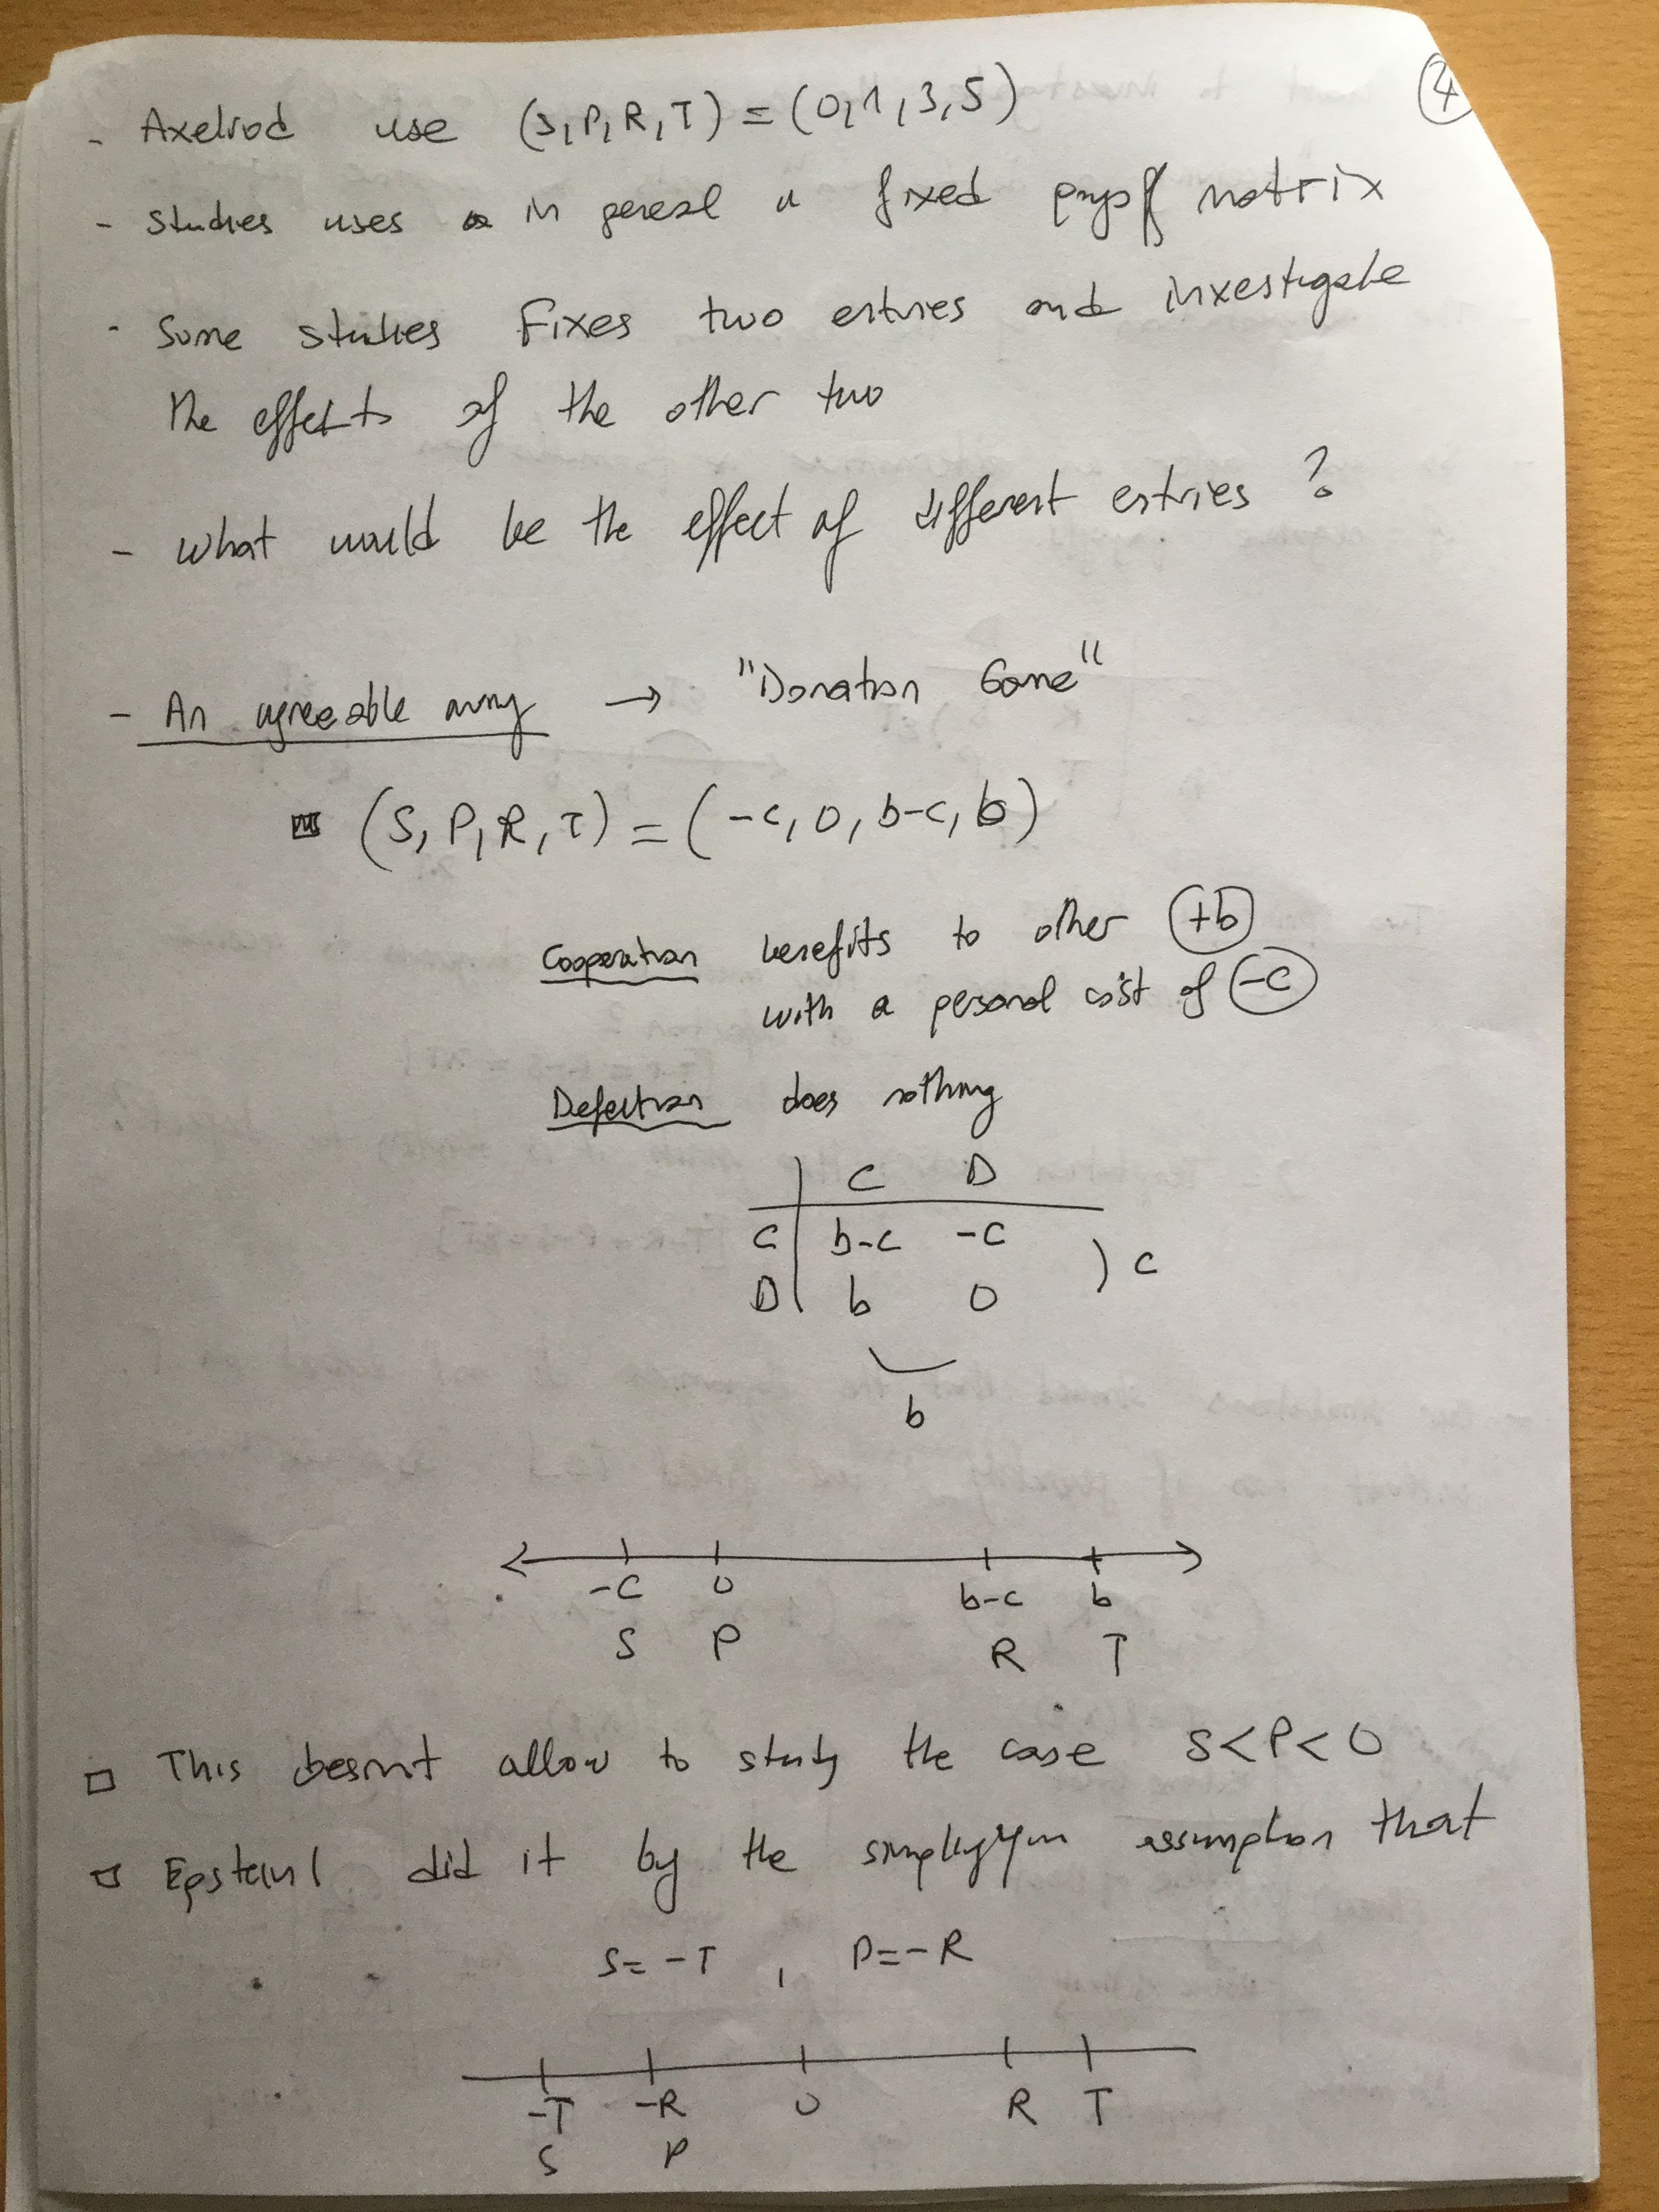 ④
- Axelrod use (S,P,R,T) = (0,1,3,5)
- Studies uses in general a fixed payoff matrix
- Some studies Fixes two entries and investigate
the effects of the other two
- What would be the effect of different entries ?
- An agreeable → "Donation Game"
(S, P, R, T) = (-c, 0, b-c, b)
Cooperation benefits to other +b
with a personal cost of -c
Defection does nothing
C D
C b-c -c ) c
D b 0
b
-c 0 b-c b
S P R T
□ This doesn't allow to study the case S<P<0
□ did it by the assumption that
S= -T , P=-R
-T -R 0 R T
S P